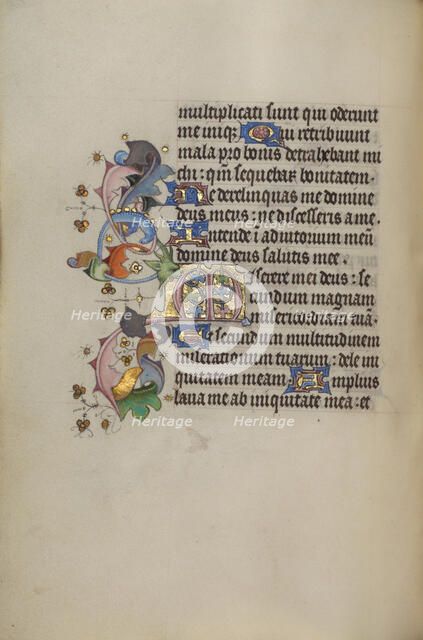 multiplicati sunt qui oderunt
me iniq; Qui retribuunt
mala pro bonis detrahebant mi
chi: qm̄ sequebar bonitatem.
Ne derelinquas me domine
deus meus: ne discesseris a me.
Intende i adiutorium meū
domine deus salutis mee.
Miserere mei deus: se
cundum magnam
misericordiam tuā.
Et secundum multitudinem
miserationum tuarum: dele ini
quitatem meam Amplius
laua me ab iniquitate mea: et
Heritage
Heritage
Heritage
Heritage
Heritage
Heritage
Heritage